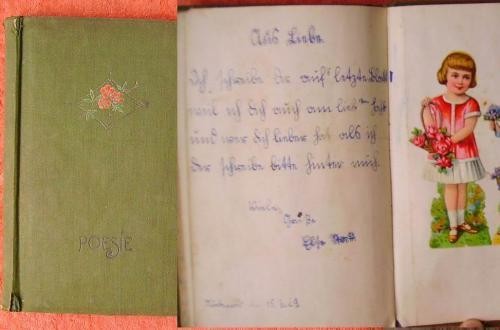 POESIE
Aus Liebe.
Ich schreibe dir auf's letzte Blatt
weil ich dich auch am liebsten hab
und wer dich lieber hat als ich
der schreibe bitte hinter mich.
Viele
Grüße
Else